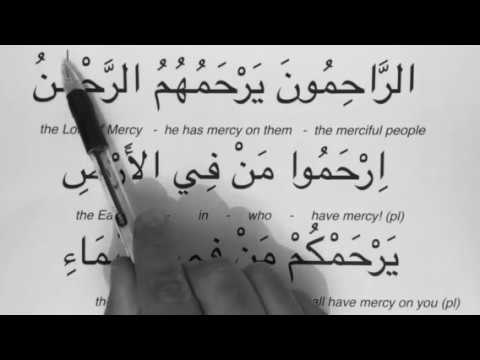 الرَّاحِمُونَ يَرْحَمُهُمُ الرَّحْمَنُ
the Mercy - he has mercy on them - the merciful people
اِرْحَمُوا مَنْ فِي الأَرْضِ
the - in - who - have mercy! (pl)
يَرْحَمْكُمْ مَنْ فِي
have mercy on you (pl)